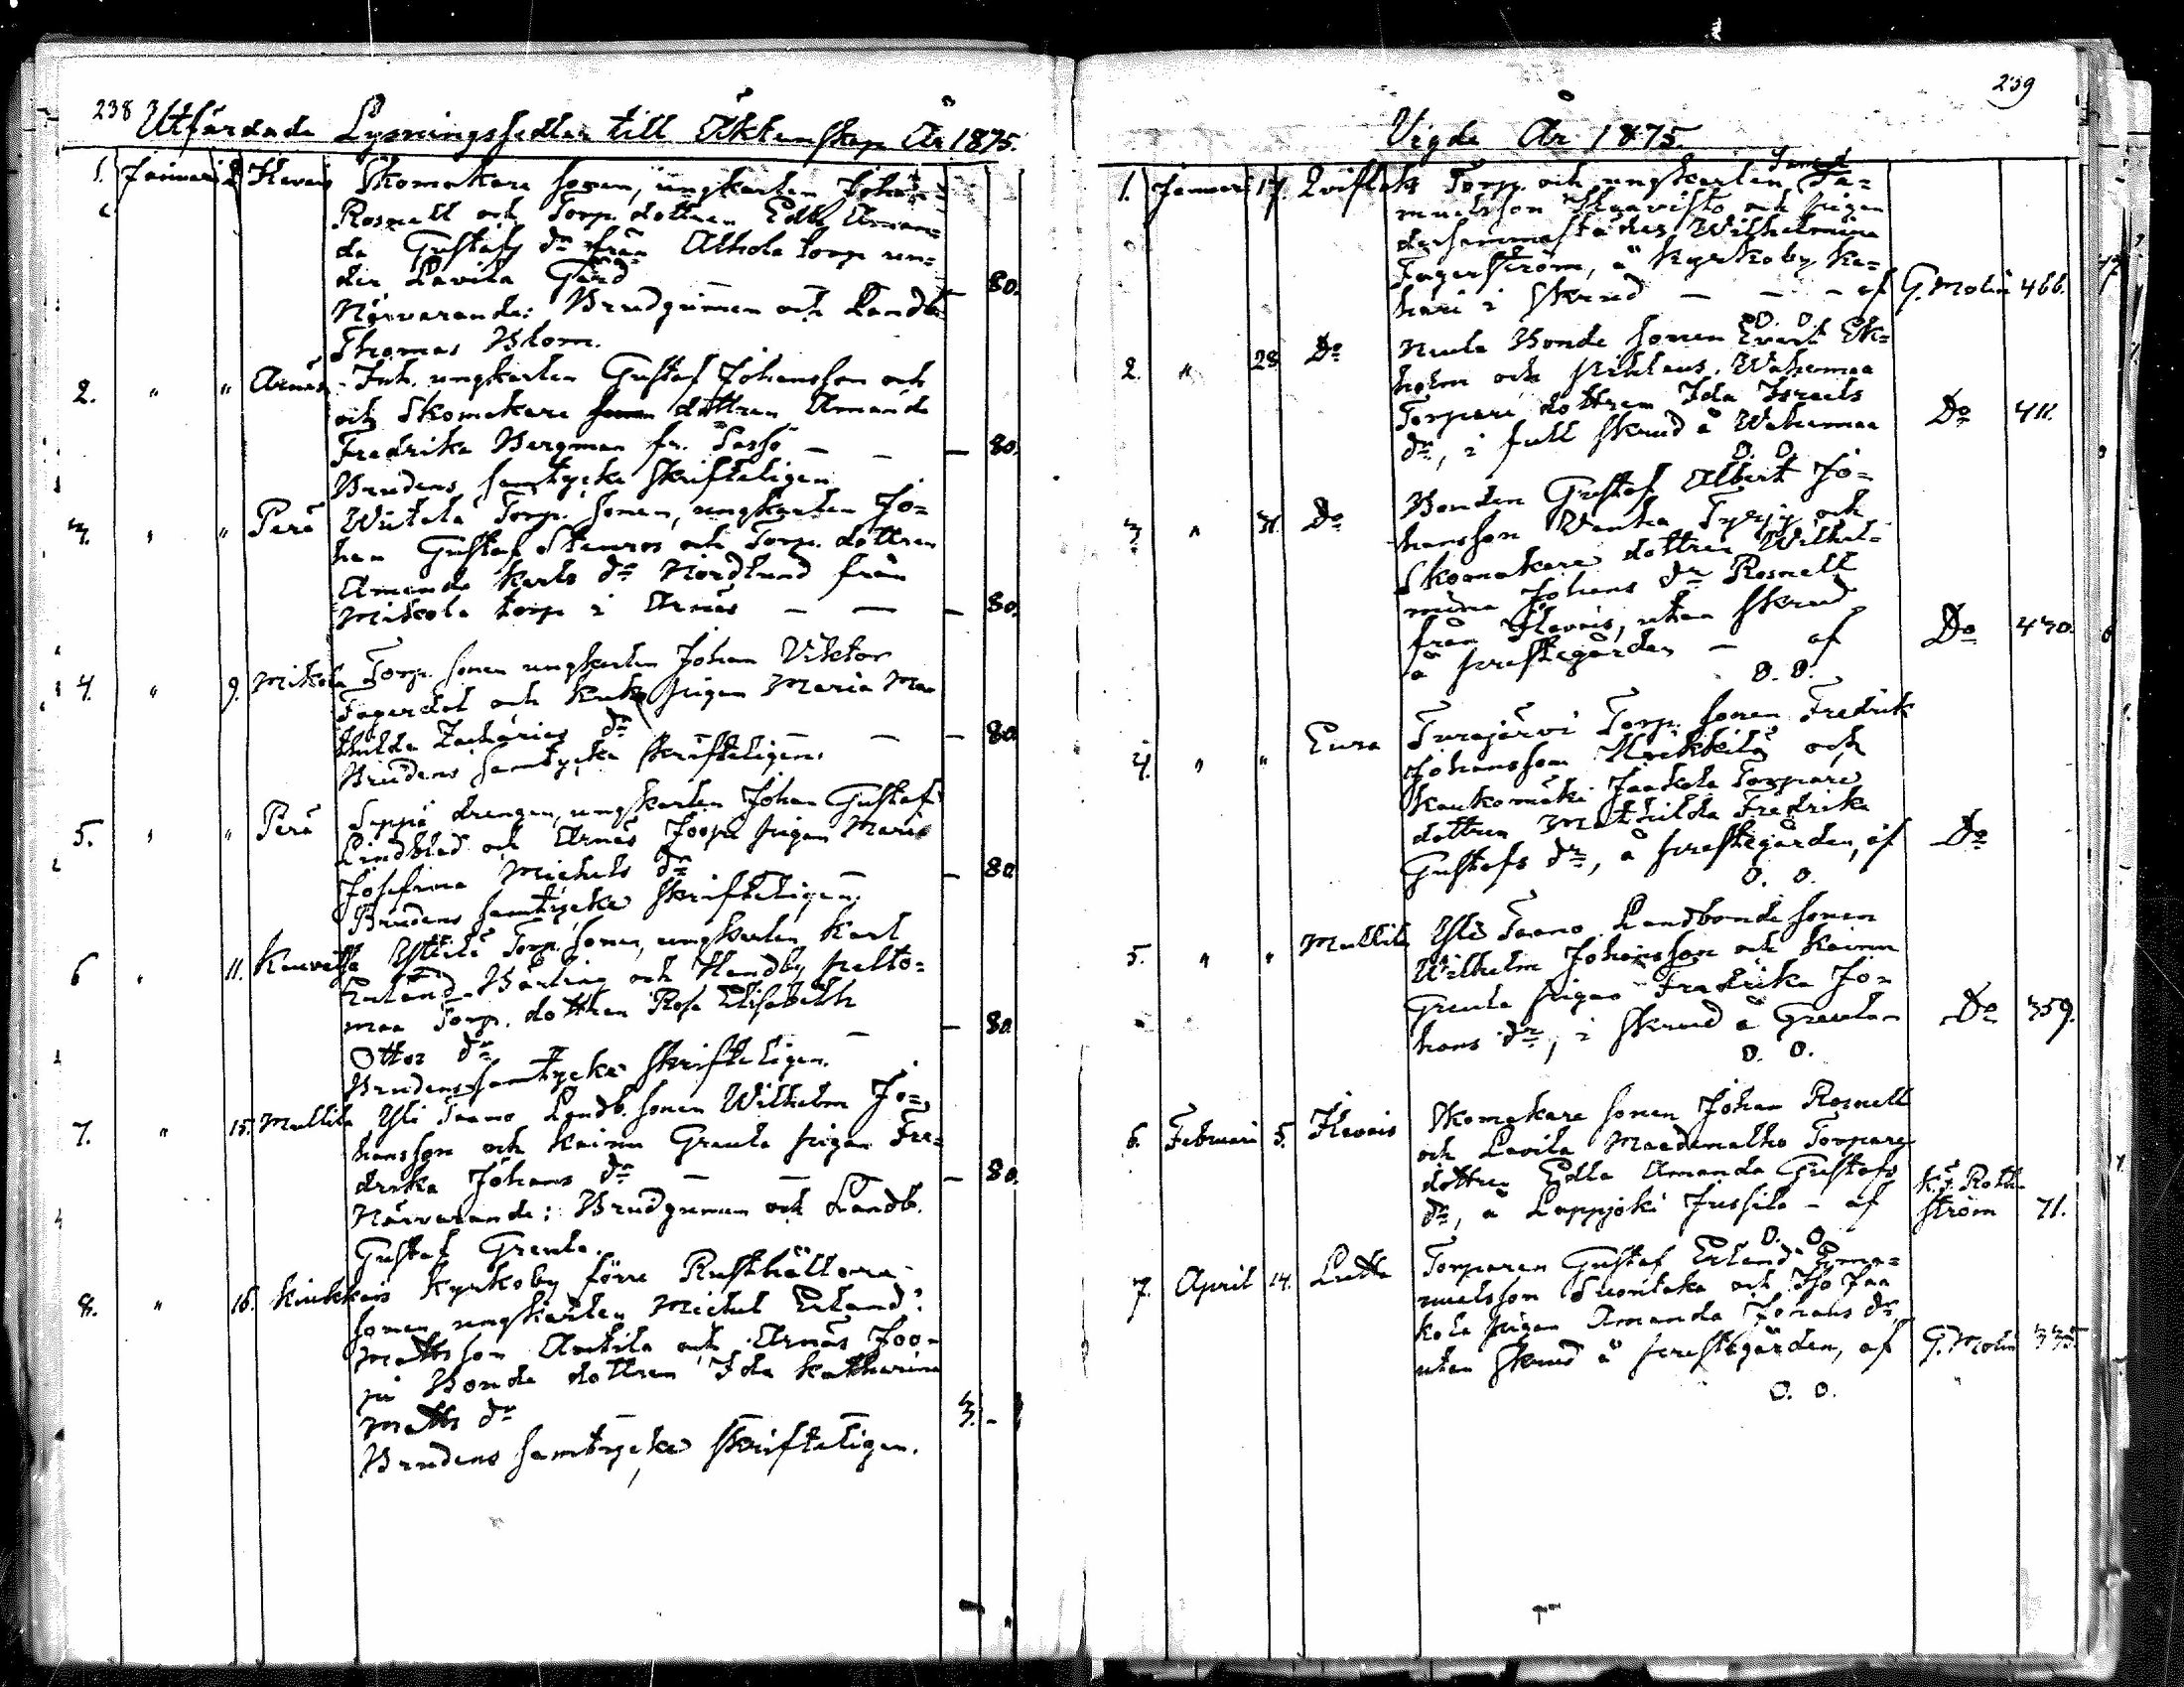 238 Utfärdade Lysningssedlar till Äktenskap År 1875.
1. Januari 2 Ilavais Skomakare sonen, ungkarlen Johan
Rosnell och Torp. dottren Edla Aman=
da Gustafs dr från Alhola torp un=
der Lavila Gård — 80.
Närvarande: Brudgumen och Landb.
Thomas Blom.
2. " " Arnäs Inh. ungkarlen Gustaf Johansson och
och Skomakare sonen dottren Amanda
Fredrika Bergman fr. Sasso — — — 80.
Brudens samtycke skrifteligen
3. " " Perä Wiitala Torp. sonen, ungkarlen Jo=
han Gustaf Stenros och Torp. dottren
Amanda Karls dr Nordlund från
Mikola torp i Arnäs — — — 80.
4. " 9. Mikola Torp. sonen ungkarlen Johan Viktor
Fagerdal och pigan Maria Ma
thilda Zacharias dr — — — 80
Brudens samtycke skrifteligen.
5. " " Perä Seppä drengen, ungkarlen Johan Gustaf
Lindblad och Arnäs Joopi pigan Maria
Josefina Michels dr — 80
Brudens samtycke skrifteligen.
6 " 11. Torp. sonen, ungkarlen Karl
Erland Bärling och Handby pelto=
maa Torp. dottren Rosa Elisabeth
Ottos dr — — 80
Brudens samtycke skrifteligen.
7. " 15. Mullila Yli Taano Landb. sonen Wilhelm Jo=
hansson och Kainu Greula pigan Fre=
drika Johans dr — — — 80.
Närvarande: Brudgumen och Landb.
Gustaf Greula.
8. " 16. Kiukkais Kyrkoby förre Rusthållare
sonen ungkarlen Michel Erland
Mattsson Anttila och Arnäs Joo=
pi Bonde dottren Ida Katharina
Matts dr — — 3. -
Brudens samtycke skrifteligen.
239
Vigde År 1875.
1. Januari 17. Torp. och ungkarlen Sa=
muelsson och pigan
dersammastädes Wilhelmina
Fagerström, å Kyrkoby Ka=
hari i skrud — — — af G. Molin 466.
O. O.
2. " 28 Do Neula Bonde sonen Evert Ek=
holm och Wahermaa
Torpare dottren Ida Israels
dr, i full skrud å Wahermaa Do 411.
O. O.
3. " 31. Do Bonden Gustaf Albert Jo=
hansson och
Skomakare dottren Wilhel=
mina Johans dr Rosnell
från Ilavais, utan skrud
å prestegården — af Do 430.
O. O.
4. " " Eura Turajärvi Torp. sonen Fredrik
Johansson Heikkilä och
Kaukomäki Jaakola Torpare
dottren Mathilda Fredrika
Gustafs dr, å prestegården, af Do
O. O.
5. " " Mullila Yli Taano Landbonde sonen
Wilhelm Johansson och Kainu
Greula pigan Fredrika Jo=
hans dr, i skrud å Greula — Do 359.
O. O.
6. Februari 5. Ilavais Skomakare sonen Johan Rosnell
och Lavila Maedenalho Torpare
dottren Edla Amanda Gustafs K. F. Roth=
dr, å Lappjoki Jussila — af ström 71.
O. O.
7. April 14. Lutta Torparen Gustaf Erland Ema=
nuelsson Suontaka och Iso Jaa
kola pigan Amanda Johans dr,
utan skrud å prestegården, af G. Molin 335.
O. O.